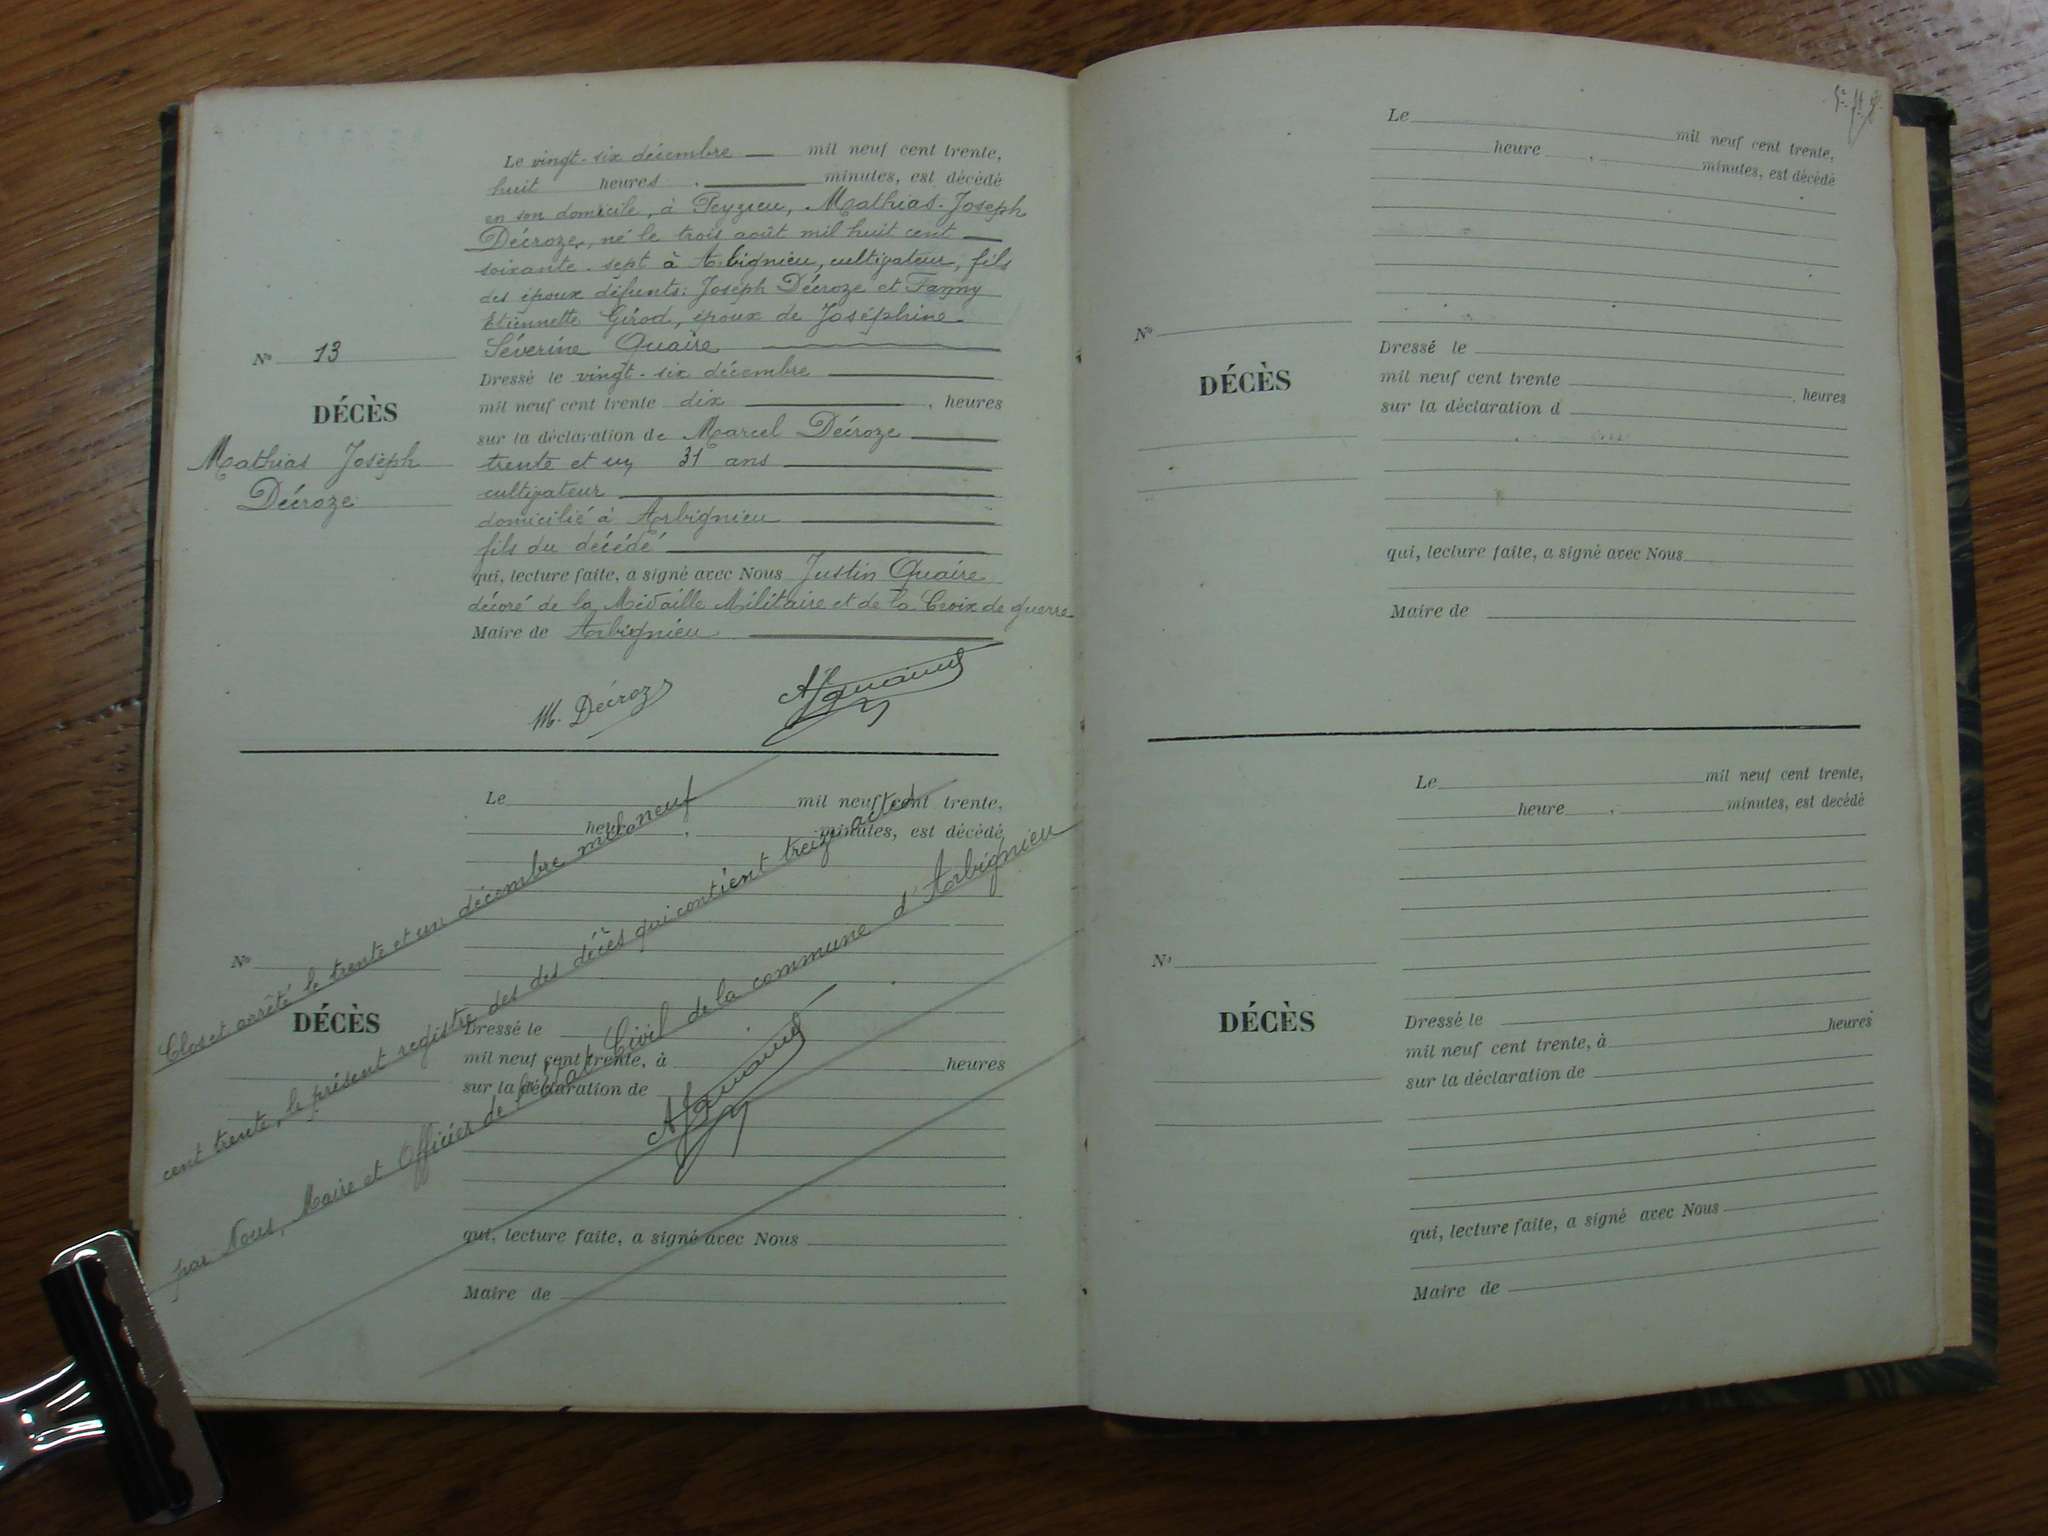 Le vingt-six décembre mil neuf cent trente,
huit heures, minutes, est décédé
en son domicile, à Peyzieu, Mathias-Joseph
Décroze, né le trois août mil huit cent
soixante-sept à Arbignieu, cultivateur, fils
des époux défunts: Joseph Décroze et Fanny
Etiennette Gérod, époux de Joséphine
Séverine Quaire
Nº 13
DÉCÈS
Mathias Joseph
Décroze
Dressé le vingt-six décembre
mil neuf cent trente dix, heures
sur la déclaration de Marcel Décroze
trente et un 31 ans
cultivateur
domicilié à Arbignieu
fils du décédé
qui, lecture faite, a signé avec Nous Justin Quaire
décoré de la Médaille Militaire et de la Croix de guerre
Maire de Arbignieu
M. Décroze
Le mil neuf cent trente,
heure, minutes, est décédé
Nº
DÉCÈS
Dressé le
mil neuf cent trente, à heures
sur la déclaration de
qui, lecture faite, a signé avec Nous
Maire de
Clos et arrêté le trente et un décembre mil neuf
cent trente, le présent registre des des décès qui contient treize actes
par Nous, Maire et Officier de l'état Civil de la commune d'Arbignieu
Le mil neuf cent trente,
heure, minutes, est décédé
Nº
DÉCÈS
Dressé le
mil neuf cent trente, heures
sur la déclaration d
qui, lecture faite, a signé avec Nous
Maire de
Le mil neuf cent trente,
heure, minutes, est décédé
Nº
DÉCÈS
Dressé le
mil neuf cent trente, à heures
sur la déclaration de
qui, lecture faite, a signé avec Nous
Maire de